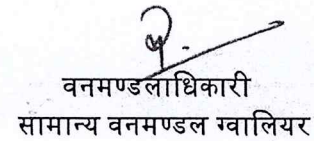 वनमण्डलाधिकारी
सामान्य वनमण्डल ग्वालियर